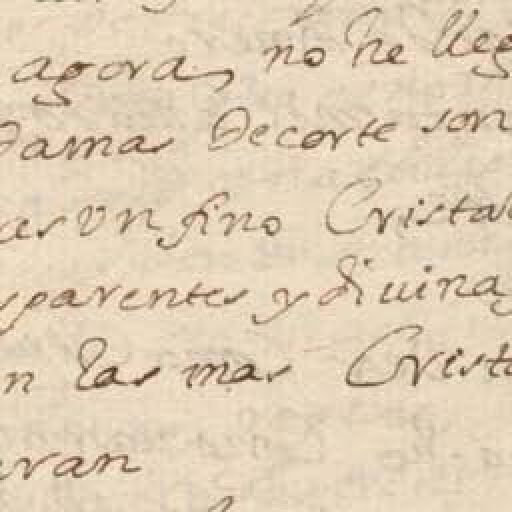 agora, no he lleg
damas de corte son
as vn fino Cristal
sparentes y diuinas
n las mas Crist
ran